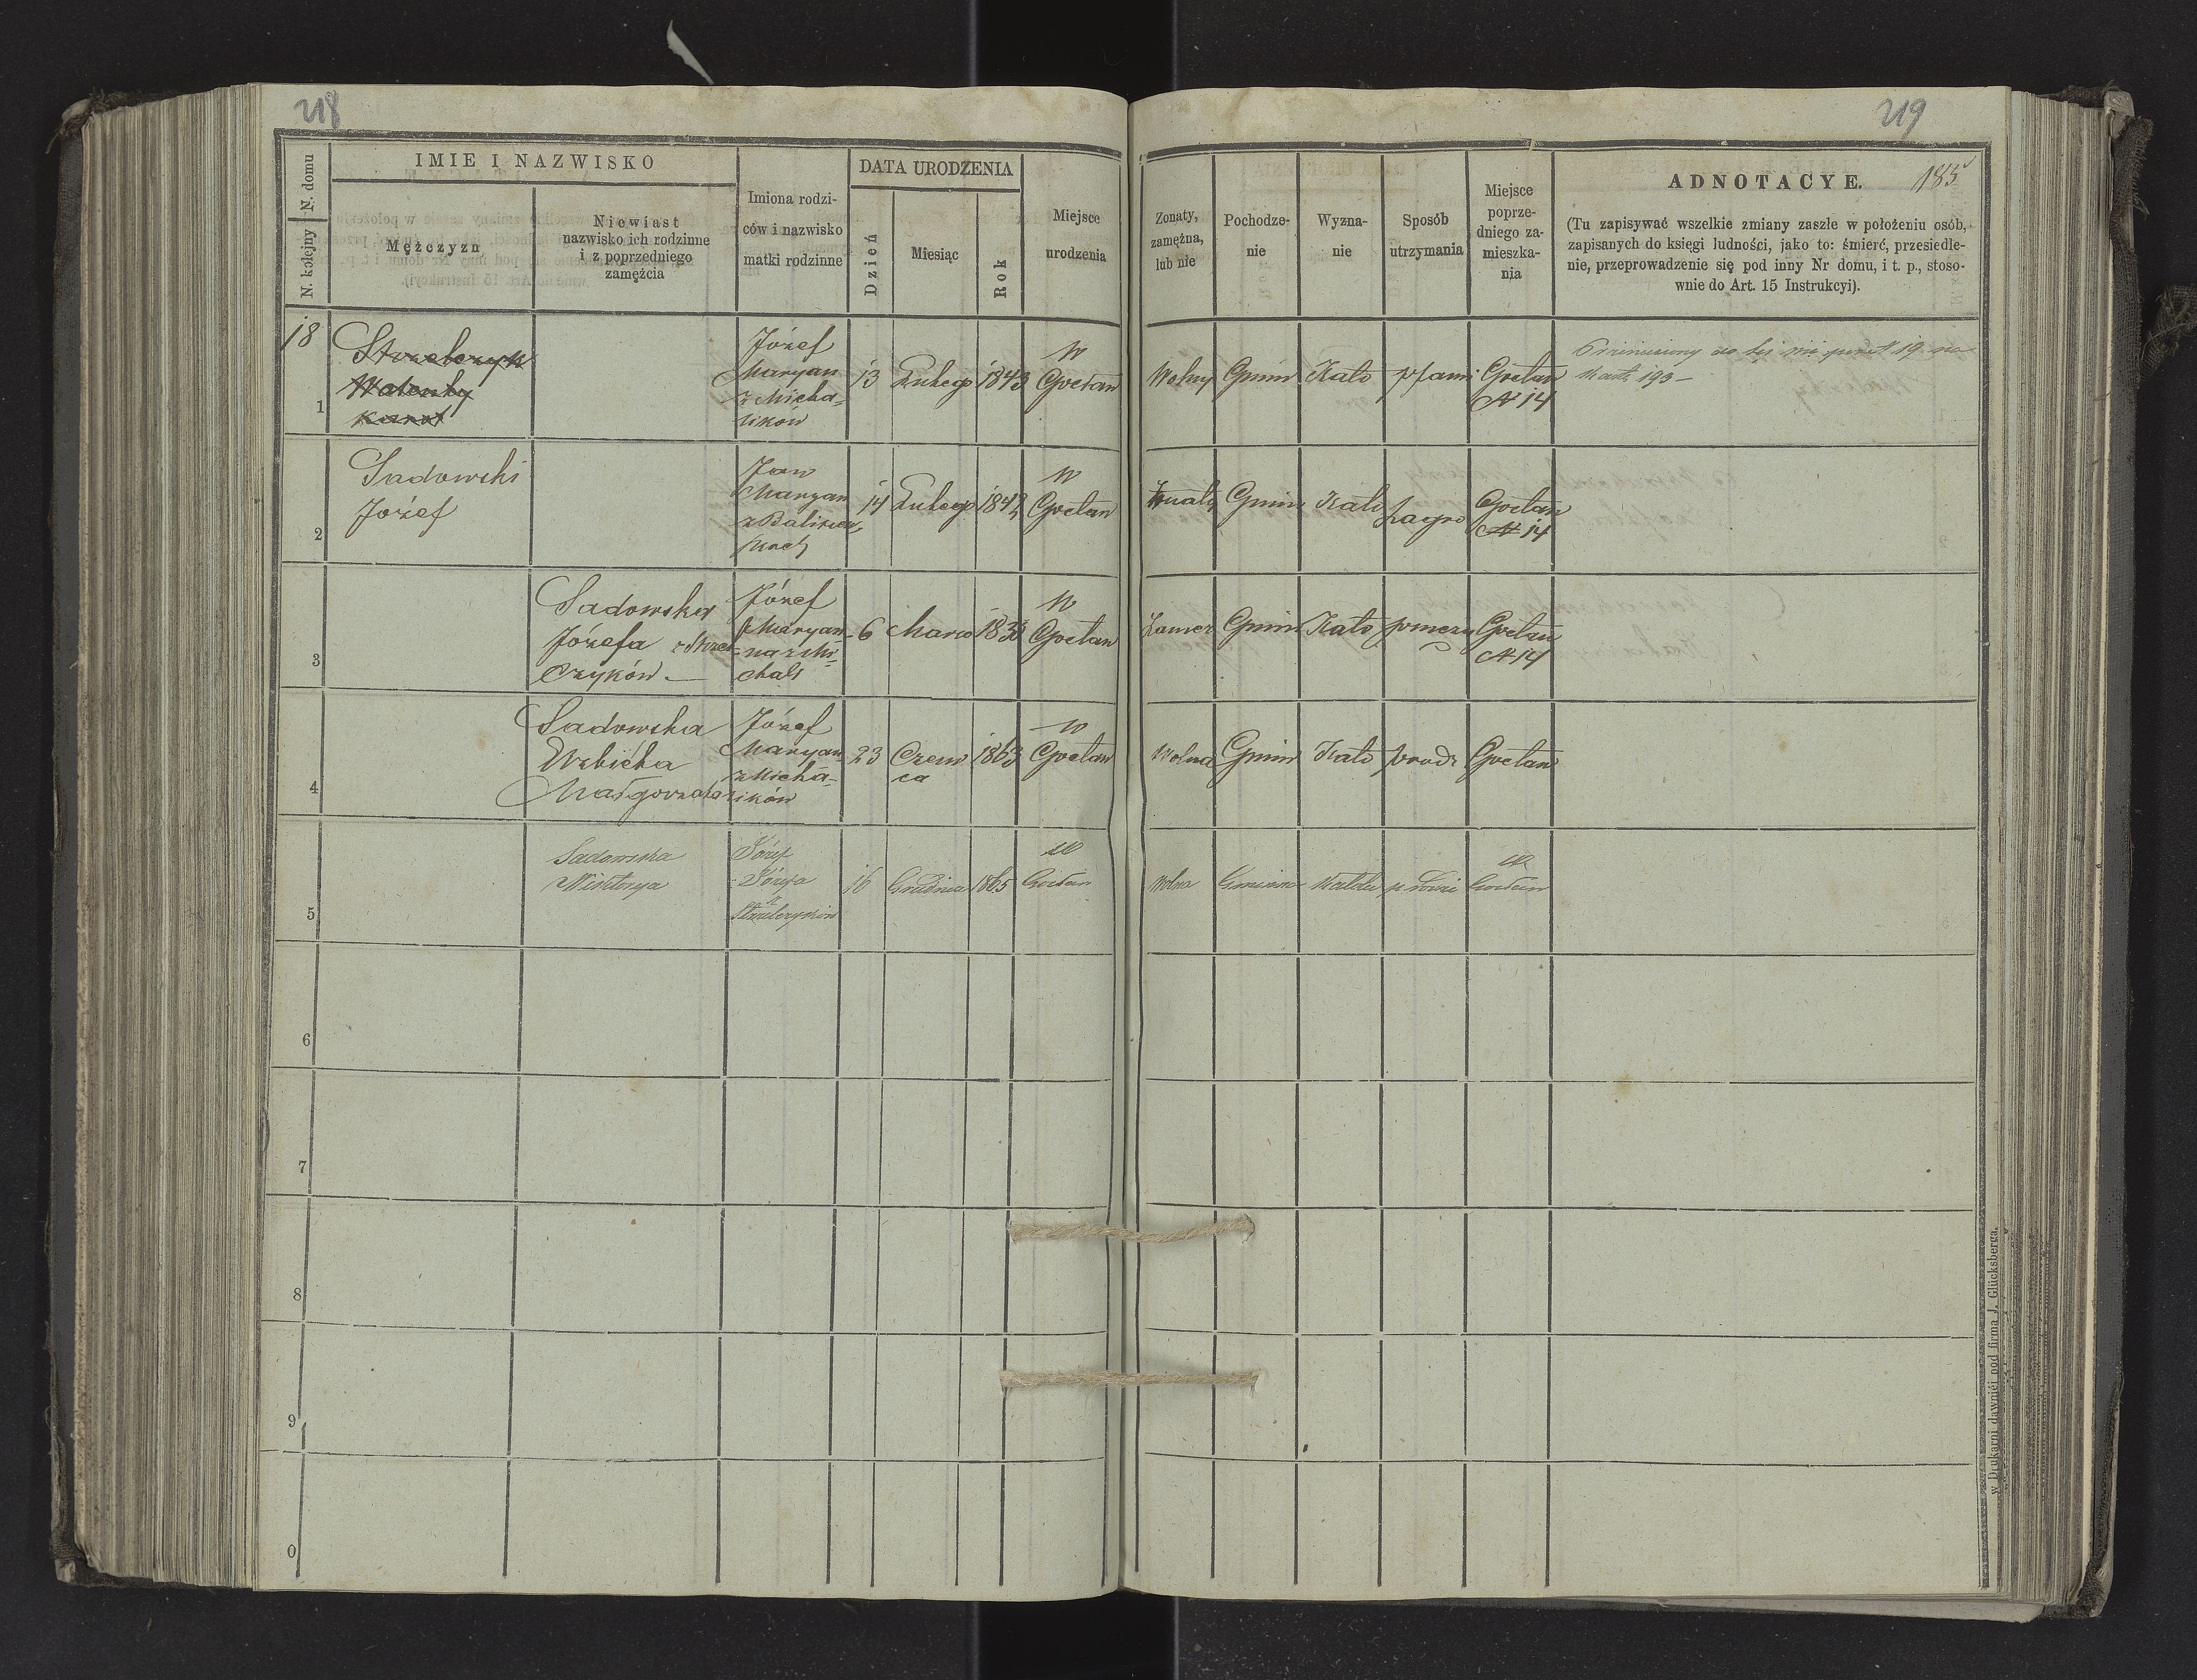 218
219
185
N. domu
N. kolejny
IMIE I NAZWISKO
Mężczyzn
Niewiast
nazwisko ich rodzinne
i z poprzedniego
zamężcia
Imiona rodzi-
ców i nazwisko
matki rodzinne
DATA URODZENIA
Dzień
Miesiąc
Rok
Miejsce
urodzenia
Żonaty,
zamężna,
lub nie
Pochodze-
nie
Wyzna-
nie
Sposób
utrzymania
Miejsce
poprze-
dniego za-
mieszka-
nia
ADNOTACYE.
(Tu zapisywać wszelkie zmiany zaszłe w położeniu osób,
zapisanych do księgi ludności, jako to: śmierć, przesiedle-
nie, przeprowadzenie się pod inny Nr domu, i t. p., stoso-
wnie do Art. 15 Instrukcyi).
18
1
Strzelczyk
Walenty
Karol
Józef
Maryan
z Micha-
lików
13 Lutego 1843
W
Gocław
Wolny Gmin Kato
Gocław
N 14
19
193 -
2
Sadowski
Józef
Jan
Maryan
14 Lutego
W
Gocław
Gmin Kato
Gocław
N 14
3
Sadowska
Józefa
czyków -
Józef
Maryan-
na z Mi-
chali
6 Marca
W
Gocław
Zamęz Gmin Kato
Gocław
N 14
4
Sadowska
Elzbieta
Małgorzata
Józef
Maryan
z Micha-
lików
23 Czerw
ca
1863
W
Gocław
Wolna Gmin Kato
Gocław
5
Sadowska
Wiktorya
Józef
Józefa
z
Strzelczyków
16 Grudnia 1865
W
Gocław
Wolna
W
Gocław
6
7
8
9
0
w Drukarni dawniéj pod firmą J. Glücksberga.